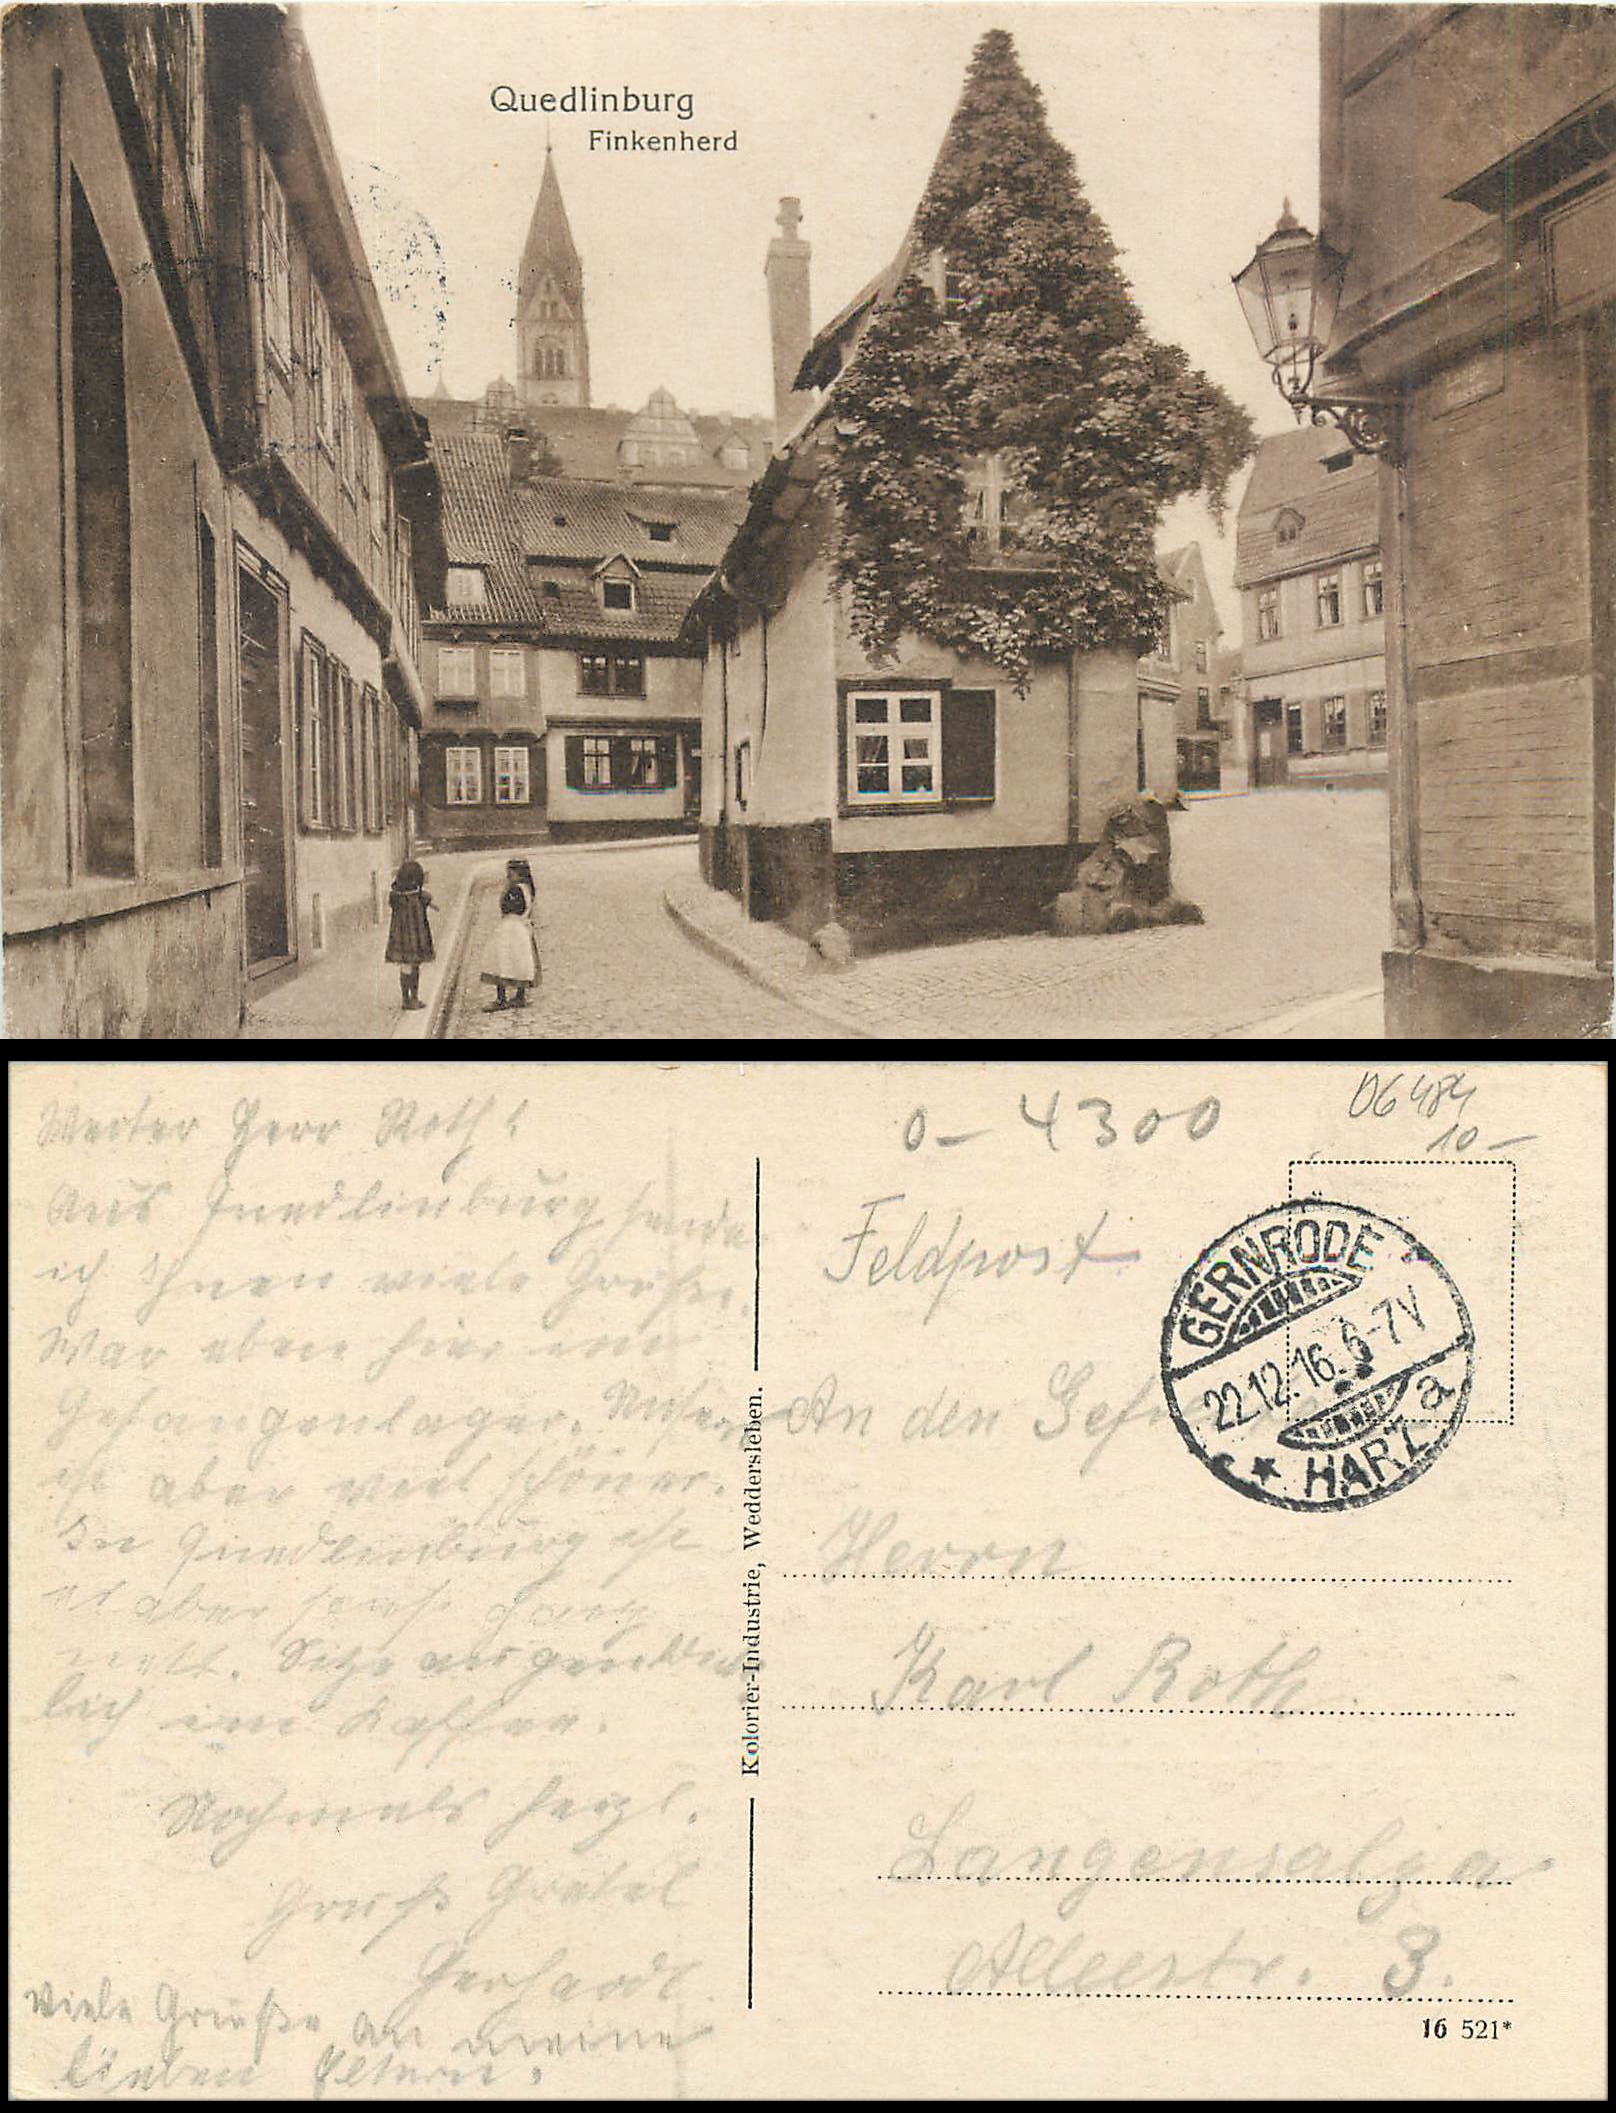 Quedlinburg
Finkenherd
Werter Herr Roth!
Aus Quedlinburg sende
ich Ihnen viele Grüße.
War eben hier im
Gefangenlager. Unser
ist aber viel schöner.
In Quedlinburg ist
es aber sonst ganz
nett. Sitze augenblick
lich im Kaffee.
Nochmals herzl.
Gruß
Gerhardt.
Viele Grüße an meine
lieben Eltern.
Kolorier-Industrie, Weddersleben.
0-4300
06484
10-
Feldpost
GERNRODE
22.12.16. 6-7V
a
HARZ
An den
Herrn
Karl Roth
Langensalza
Alleestr. 3.
16 521*